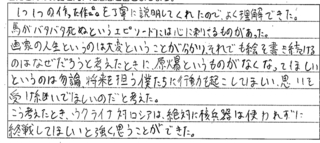 1つ1つの作品を丁寧に説明してくれたので、よく理解できた。
馬がバタバタ死ぬというエピソードには心に刺さるものがあった。
画家の人生というのは大変ということが分かり、それでも絵を書き続ける
のはなぜだろうと考えたときに、原爆というものがなくなってほしい
というのは勿論、将来を担う僕たちに行動を起こしてほしい、思いを
受け継いでほしいのだと考えた。
こう考えたとき、ウクライナ対ロシアは、絶対に核兵器は使わずに
終戦してほしいと強く思うことができた。